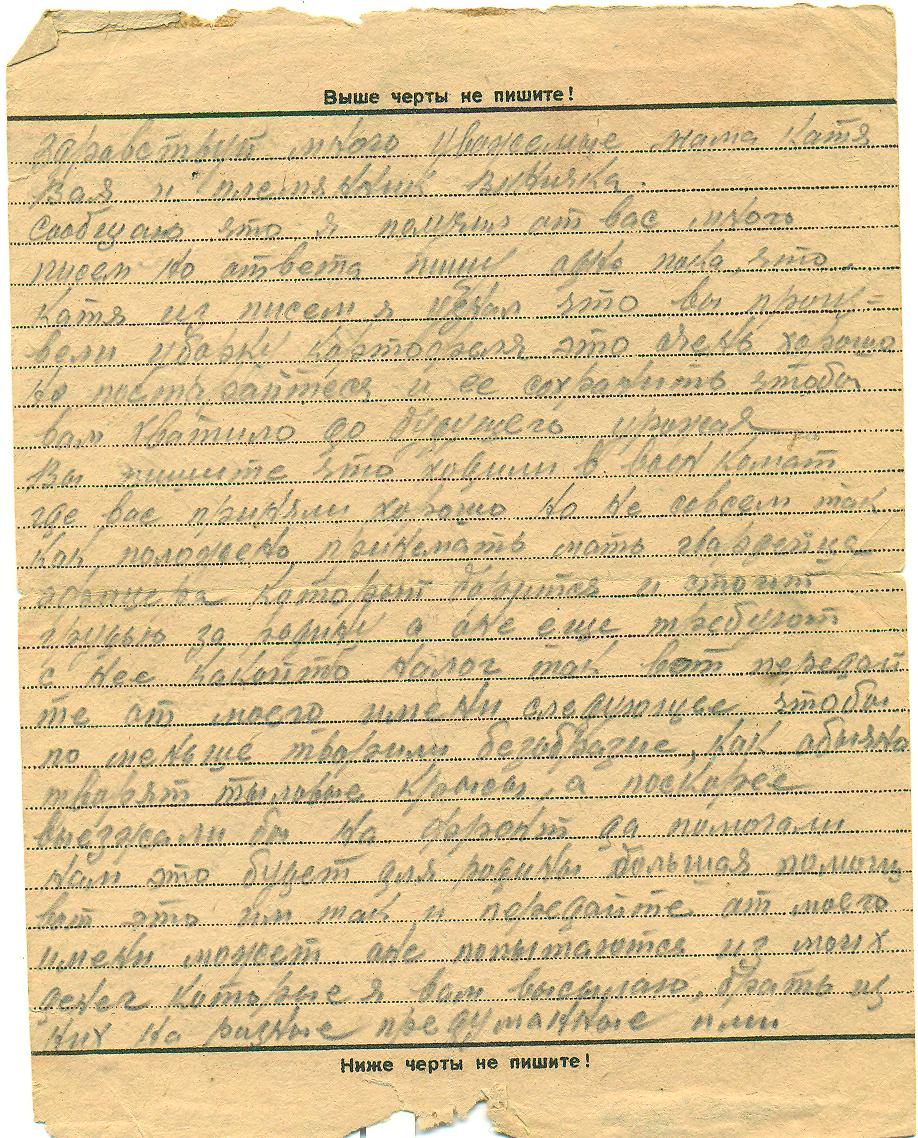 Выше черты не пишите!
Здравствуй много уважаемые мама Катя
Вая и племянник
сообщаю что я получил от вас много
писем но ответа пишу одно пока что.
Катя из писем я узнал что вы произ=
вели уборку картофеля это очень хорошо
но постарайтеся и ее сохранить чтобы
вам хватило до будущего урожая
Вы пишите что ходили в воен комат
где вас приняли хорошо но не совсем так
как положено принемать мать гвардейца
который борится и стоит
грудью за родину а оне еще требуют
с нее какойто налог так вот передай
те от моего имени следующее чтобы
по меньше творили безобразие, как обычно
творят тыловые крысы, а поскорее
выезжали бы на фронт да помогали
нам это будет для родины большая помощь
вот это им так и передайте от моего
имени может оне попытаются из моих
денег которые я вам высылаю, брать из
них на разные предуманные ими
Ниже черты не пишите!